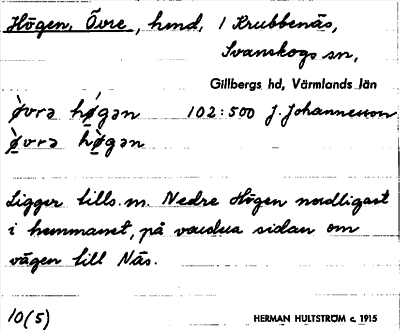 Högen, Övre, hmd, i Krubbenäs,
Svanskogs sn,
Gillbergs hd, Värmlands län
ø̀vrə hǿgən 102:500 J. Johannesson
ø̀vrə hø̀gən
Ligger tills. m. Nedre Högen nordligast
i hemmanet, på vardera sidan om
vägen till Näs.
10(5) HERMAN HULTSTRÖM c. 1915